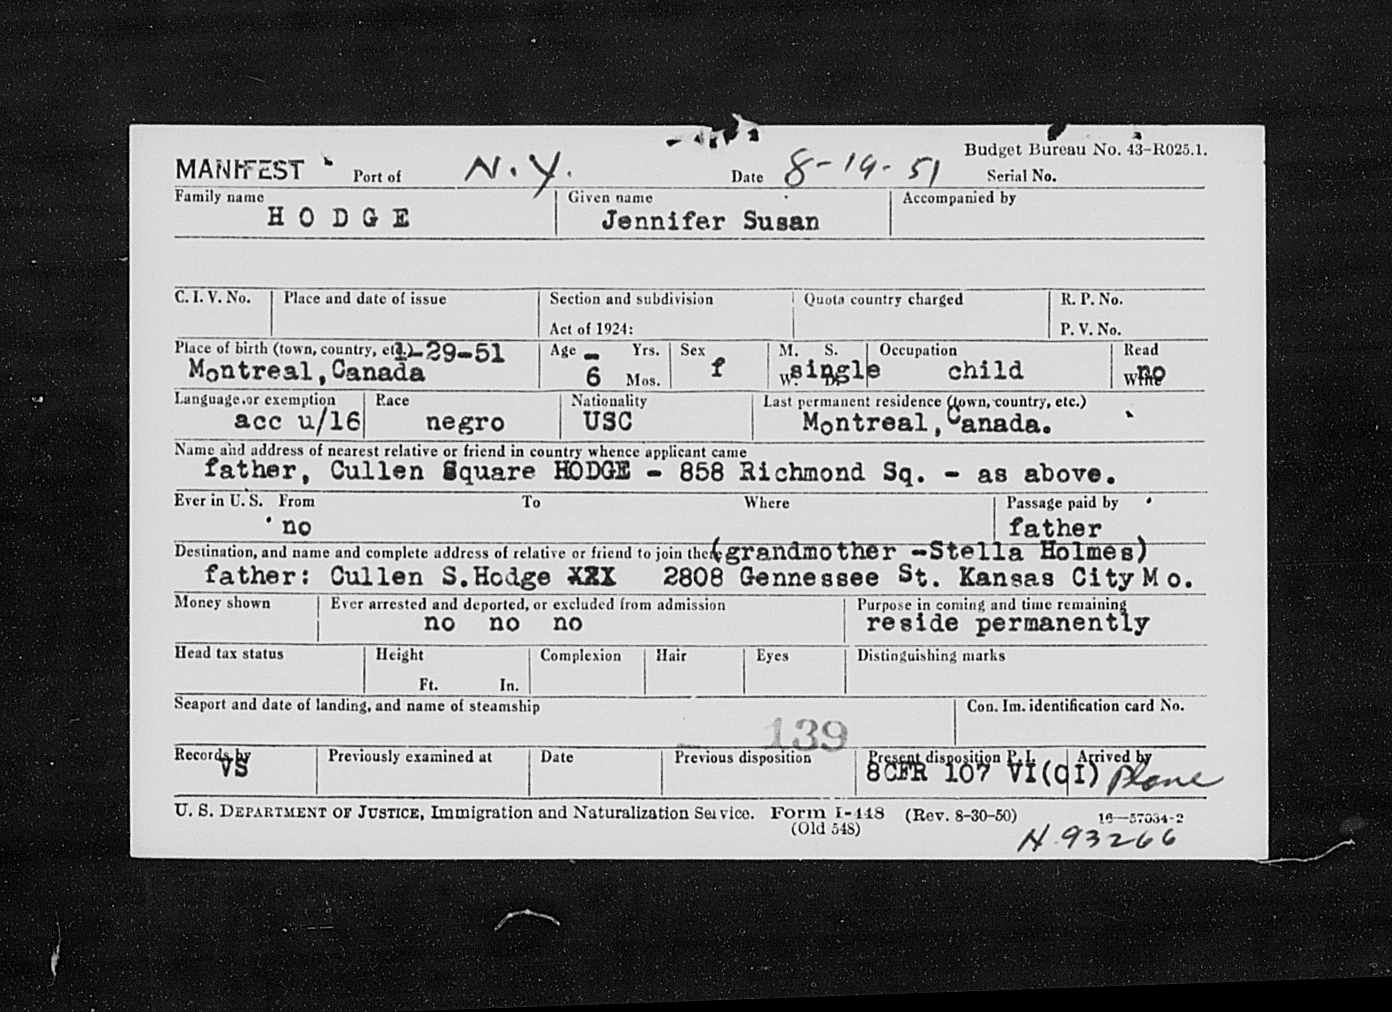 Budget Bureau No. 43-R025.1.
MANIFEST Port of N.Y. Date 8-19-51 Serial No.
Family name Given name Accompanied by
HODGE Jennifer Susan
C. I. V. No. Place and date of issue Section and subdivision Quota country charged R. P. No.
Act of 1924: P. V. No.
Place of birth (town, country, etc.) 1-29-51 Age - Yrs. Sex M. S. Occupation Read
Montreal, Canada 6 Mos. f W. D. single child Write no
Language or exemption Race Nationality Last permanent residence (town, country, etc.)
acc u/16 negro USC Montreal, Canada.
Name and address of nearest relative or friend in country whence applicant came
father, Cullen Square HODGE - 858 Richmond Sq. - as above.
Ever in U. S. From To Where Passage paid by
no father
Destination, and name and complete address of relative or friend to join there (grandmother -Stella Holmes)
father: Cullen S.Hodge XXX 2808 Gennessee St. Kansas City Mo.
Money shown Ever arrested and deported, or excluded from admission Purpose in coming and time remaining
no no no reside permanently
Head tax status Height Complexion Hair Eyes Distinguishing marks
Ft. In.
Seaport and date of landing, and name of steamship Con. Im. identification card No.
139
Records by Previously examined at Date Previous disposition Present disposition P. I. Arrived by
VS 8CFR 107 VI(qI) Plane
U. S. DEPARTMENT OF JUSTICE, Immigration and Naturalization Service. Form I-448 (Rev. 8-30-50) 16—57034-2
(Old 548) N.93266